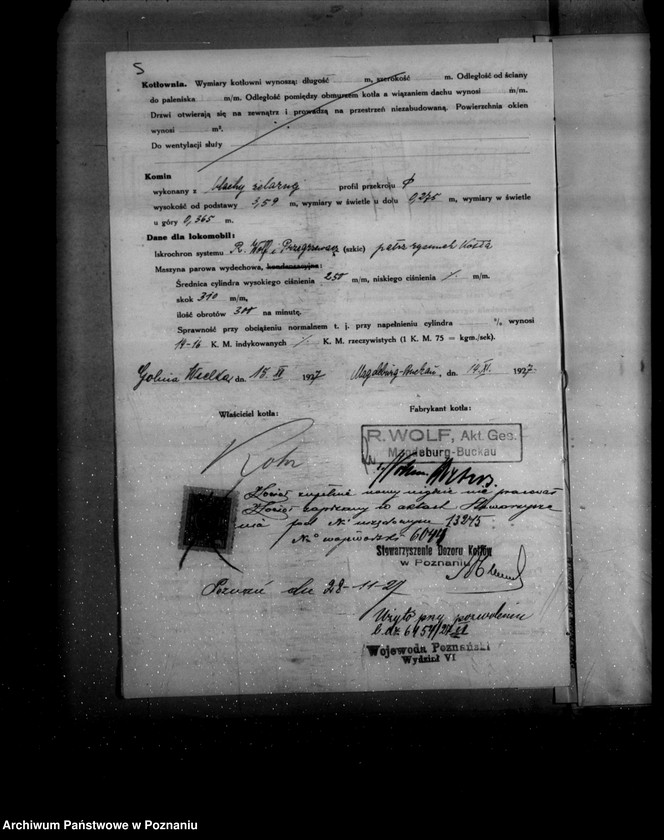 5
Kotłownia. Wymiary kotłowni wynoszą: długość m, szerokość m. Odległość od ściany
do paleniska m/m. Odległość pomiędzy obmurzem kotła a wiązaniem dachu wynosi m/m.
Drzwi otwierają się na zewnątrz i prowadzą na przestrzeń niezabudowaną. Powierzchnia okien
wynosi m².
Do wentylacji służy
Komin
wykonany z blachy żelaznej profil przekroju
wysokość od podstawy 3,59 m, wymiary w świetle u dołu 0,275 m, wymiary w świetle
u góry 0,365 m.
Dane dla lokomobil:
Iskrochron systemu R. Wolf (szkic) patrz rysunek kotła
Maszyna parowa wydechowa, kondensacyjna:
Średnica cylindra wysokiego ciśnienia 250 m/m, niskiego ciśnienia m/m.
skok 310 m/m,
ilość obrotów 300 na minutę.
Sprawność przy obciążeniu normalnem t. j. przy napełnieniu cylindra % wynosi
14-16 K. M. indykowanych K. M. rzeczywistych (1 K. M. 75 = kgm./sek).
Golina Wielka, dn. 15. XI 1927 Magdeburg-Buckau, dn. 14. XI. 1927.
Właściciel kotła: Fabrykant kotła:
R. WOLF, Akt. Ges.
Magdeburg-Buckau
Kocioł zupełnie nowy nigdzie nie pracował
Kocioł zapisany w aktach Stowarzysze
nia pod No 13245
No 6044
Stowarzyszenie Dozoru Kotłów
w Poznaniu
Poznań dn 28-11-27
Użyto przy pozwoleniu
L. dz. 6454/27 VI
Wojewoda Poznański
Wydział VI
Archiwum Państwowe w Poznaniu